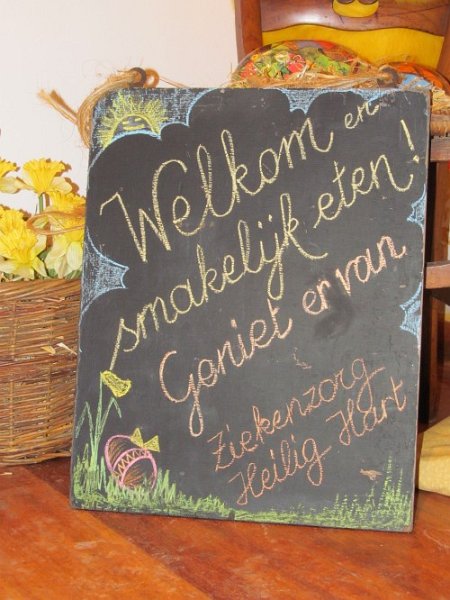 Welkom en
smakelijk eten!
Geniet ervan
Ziekenzorg
Heilig Hart